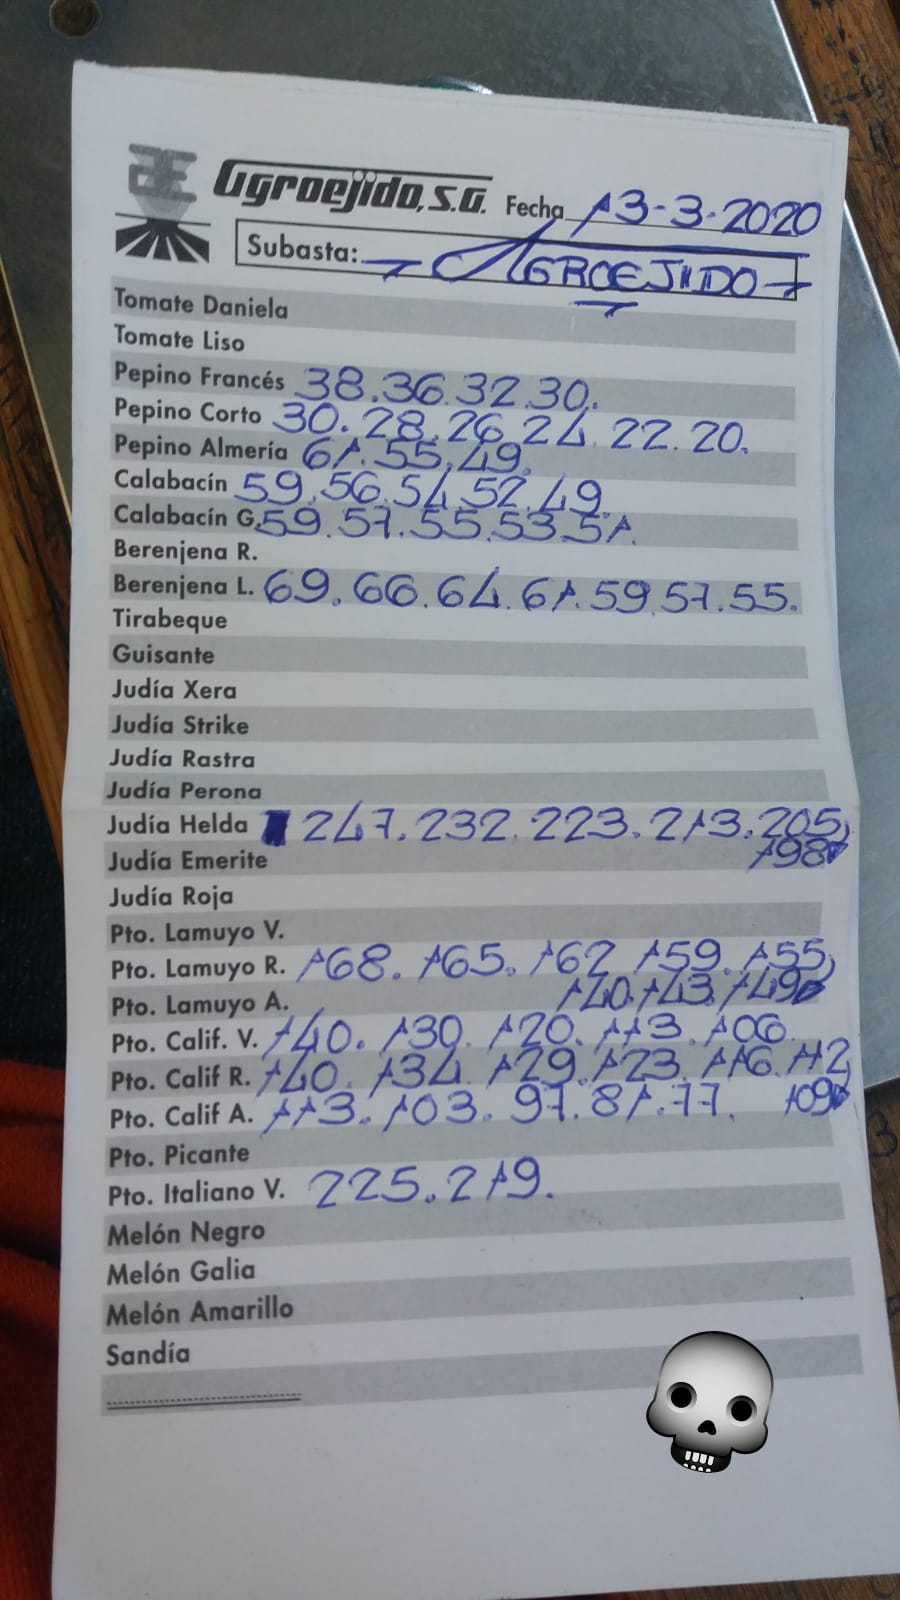 Agroejido, S.A. Fecha 13-3-2020
Subasta: AGROEJIDO
Tomate Daniela
Tomate Liso
Pepino Francés 38.36.32.30.
Pepino Corto 30.28.26.24.22.20.
Pepino Almería 61.55.49.
Calabacín 59.56.54.52.49.
Calabacín G. 59.57.55.53.51.
Berenjena R.
Berenjena L. 69.66.64.61.59.57.55.
Tirabeque
Guisante
Judía Xera
Judía Strike
Judía Rastra
Judía Perona
Judía Helda 247.232.223.213.205,
Judía Emerite 198
Judía Roja
Pto. Lamuyo V.
Pto. Lamuyo R. 168.165.162.159.155,
Pto. Lamuyo A. 140.143.149
Pto. Calif. V. 140.130.120.113.106
Pto. Calif R. 140.134.129.123.116.112
Pto. Calif A. 113.103.97.81.77. 109
Pto. Picante
Pto. Italiano V. 225.219.
Melón Negro
Melón Galia
Melón Amarillo
Sandía